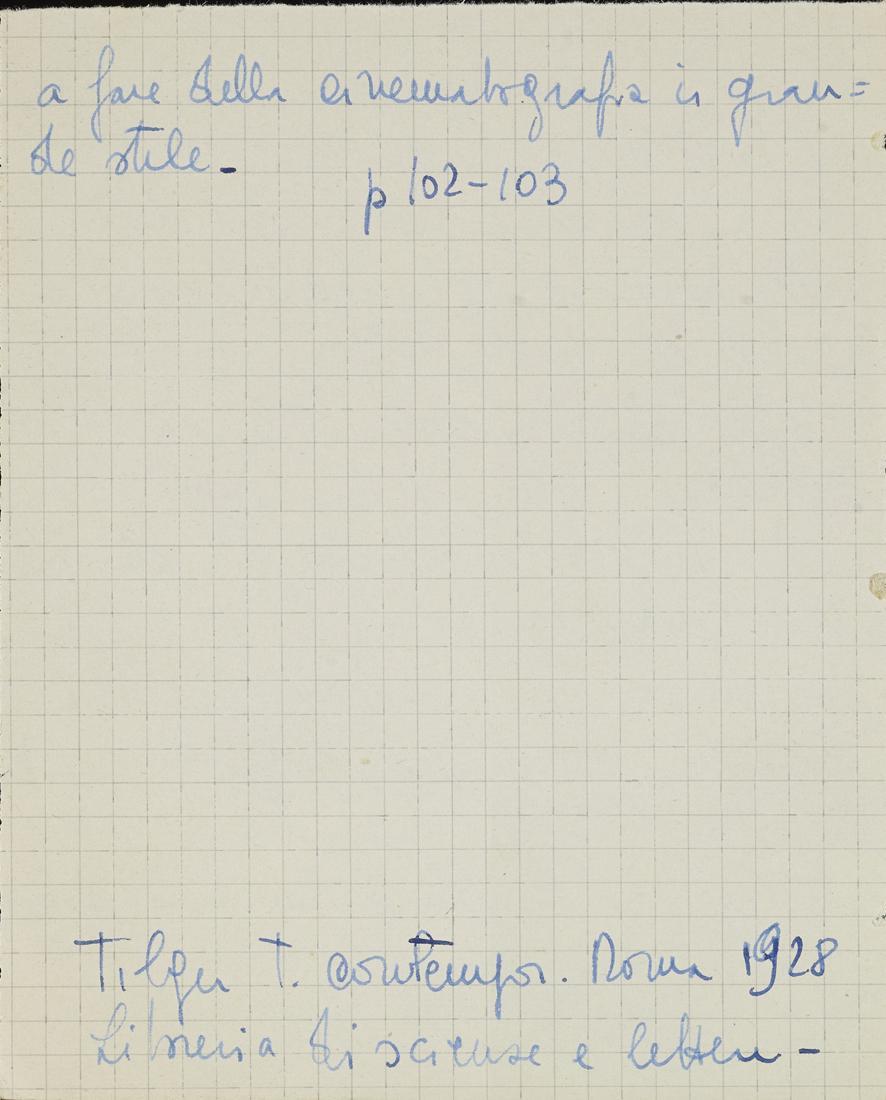 a fare della cinematografia in gran=
de stile.
p 102-103
Tilgher T. contempor. Roma 1928
Libreria di scienze e lettere -